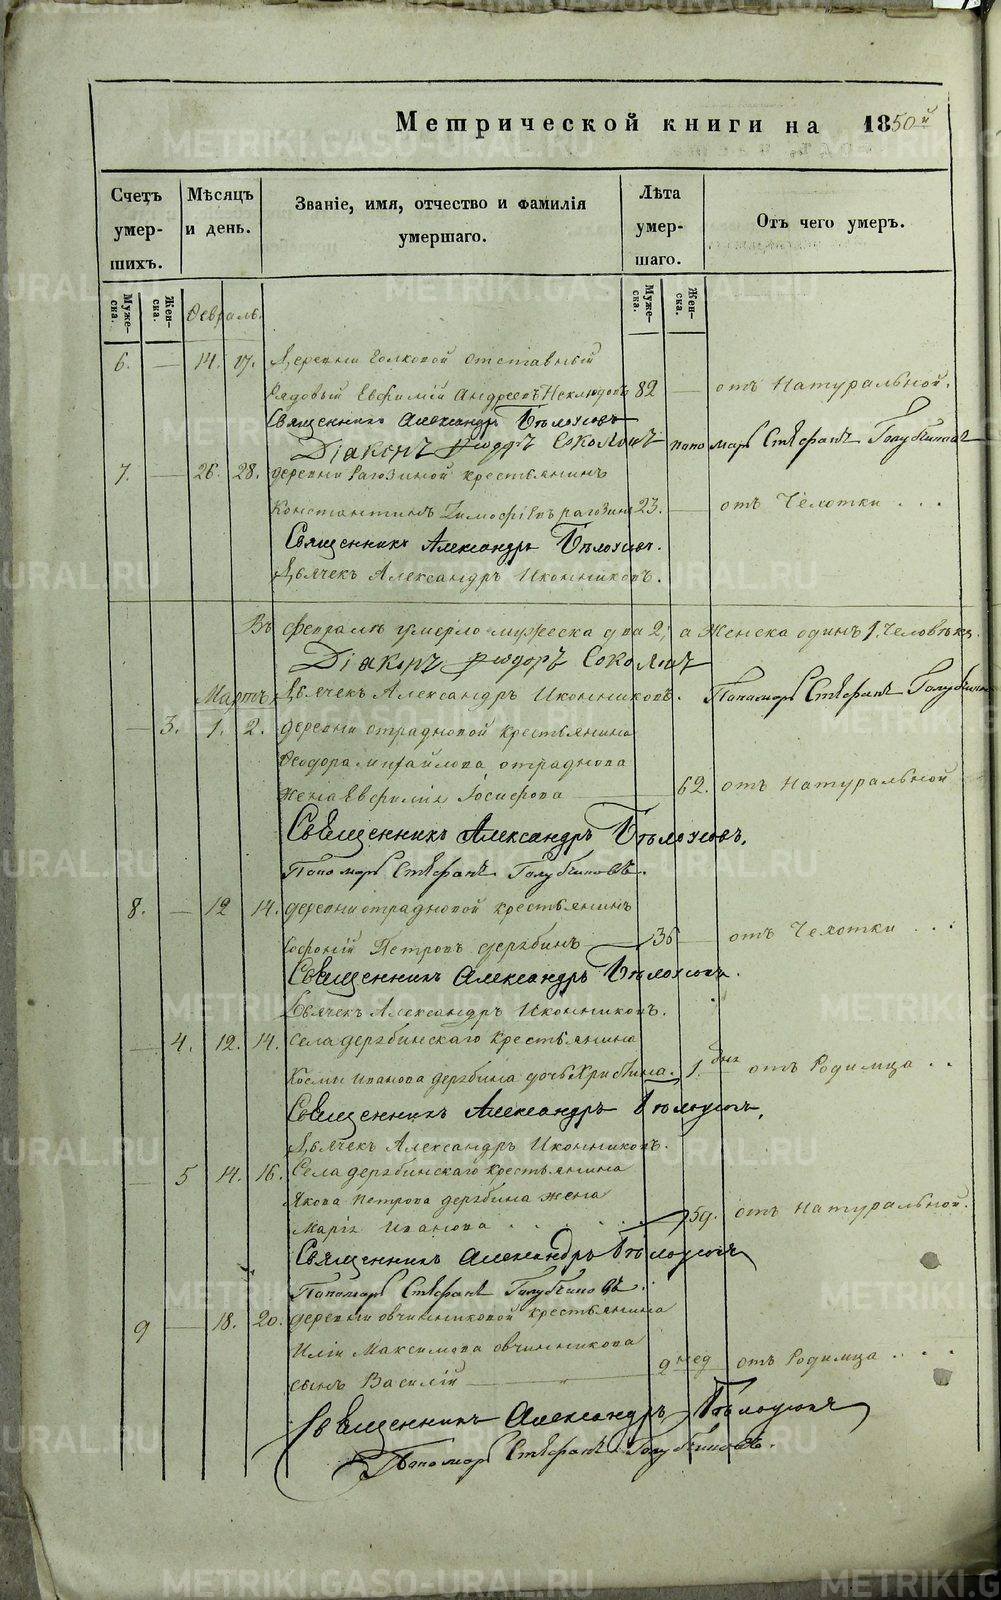 Метрической книги на 1850й
Счетъ умер-шихъ.
Мѣсяцъ и день.
Званіе, имя, отчество и фамилія умершаго.
Лѣта умер-шаго.
Отъ чего умеръ.
Муже-ска. Жен-ска. Февраль. Муже-ска. Жен-ска.
6. — 14. 17. Деревни отставный
рядовый Евфимій Андреевъ Неклюдовъ 82 — отъ Натуральной.
Священникъ Александръ Бѣлоусовъ
Діаконъ Ѳеодоръ Соколовъ пономарь Стефанъ Голубчиковъ
7. — 26. 28. деревни Рагозиной крестьянинъ
Константинъ Тимофеевъ рагозинъ 23. — отъ Чехотки . . .
Священникъ Александръ Бѣлоусовъ.
Дьячекъ Александръ Иконниковъ.
Въ февралѣ умерло мужеска два 2, а Женска одинъ 1. человѣкъ.
Діаконъ Ѳеодоръ Соколовъ
Мартъ Дьячекъ Александръ Иконниковъ. Пономарь Стефанъ Голубчиковъ
— 3. 1. 2. деревни отрадновой крестьянина
Ѳеодора михайлова отраднова
жена Евфимія Іосифова — 62. отъ Натуральной
Священникъ Александръ Бѣлоусовъ.
Пономарь Стефанъ Голубчиковъ.
8. — 12 14. деревни отрадновой крестьянинъ
Софоній Петровъ дерябинъ — 35 — отъ Чехотки . . .
Священникъ Александръ Бѣлоусовъ.
Дьячекъ Александръ Иконниковъ.
— 4. 12. 14. села дерябинскаго крестьянина
Космы Иванова дерябина дочь Христина. 1. дня отъ Родимца . .
Священникъ Александръ Бѣлоусовъ.
Дьячекъ Александръ Иконниковъ.
— 5 14. 16. Села дерябинскаго крестьянина
Якова Петрова дерябина жена
Марія Иванова . . . . 59. отъ Натуральной.
Священникъ Александръ Бѣлоусовъ
Пономарь Стефанъ Голубчиковъ.
9 — 18. 20. деревни овчинниковой крестьянина
Иліи Максимова овчинникова
сынъ Василій — 2 нед отъ Родимца . . . .
Священникъ Александръ Бѣлоусовъ
Пономарь Стефанъ Голубчиковъ.
METRIKI.GASO-URAL.RU